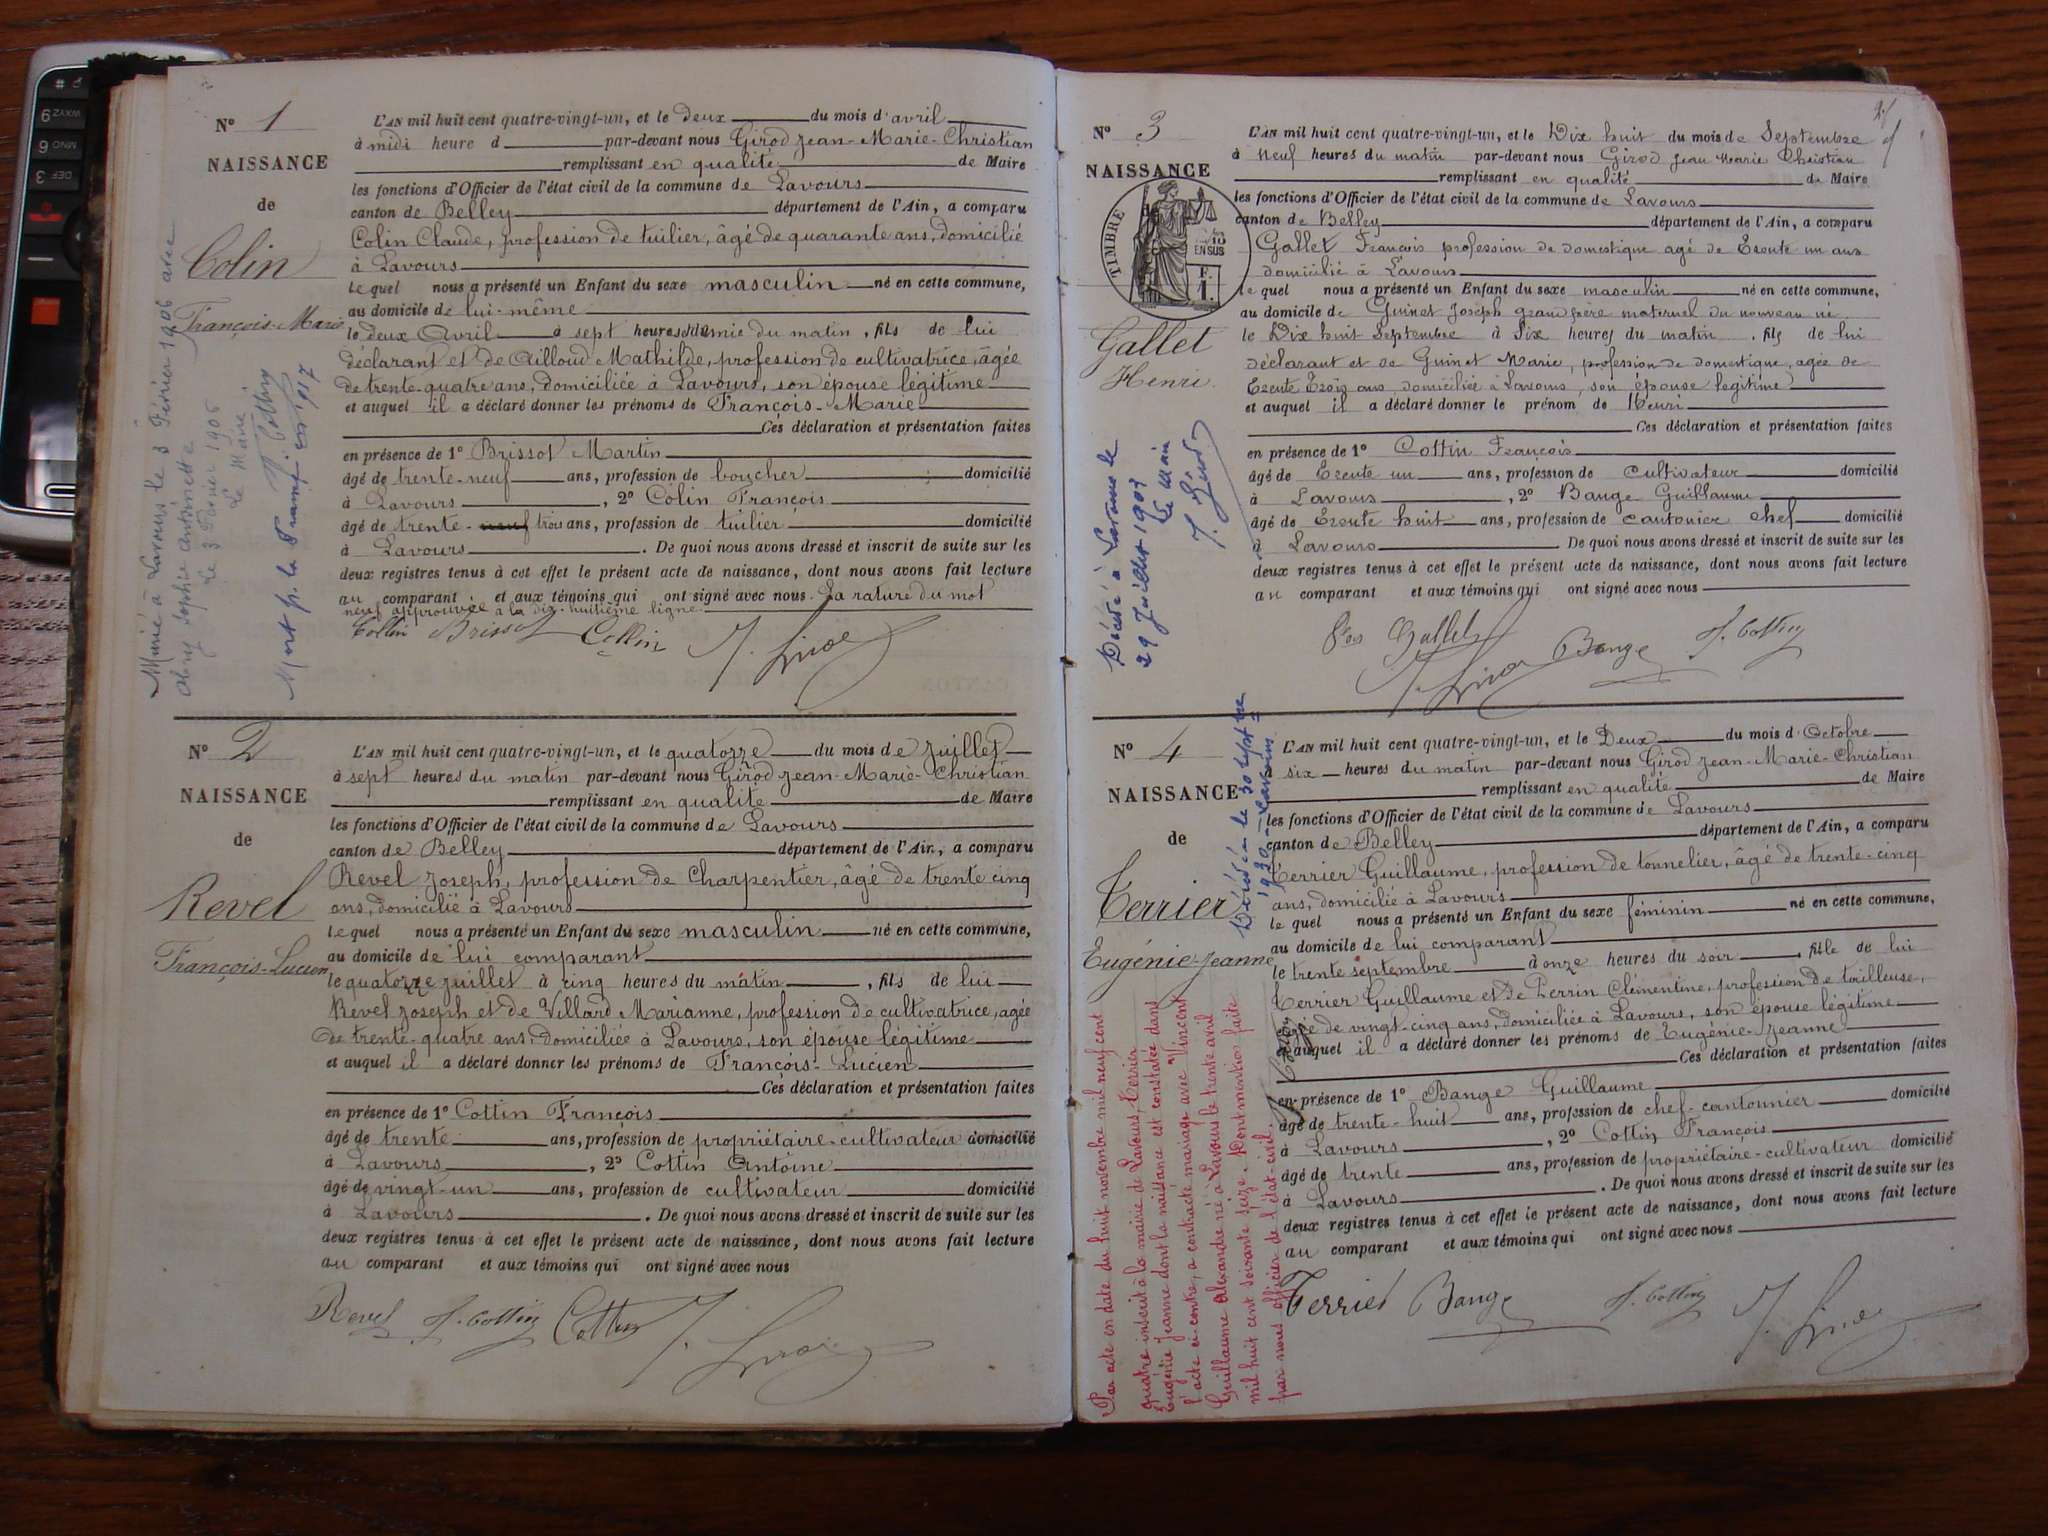 N° 1
NAISSANCE
de
Colin
François-Marie
L'AN mil huit cent quatre-vingt-un, et le deux du mois d'avril
à midi heure d par-devant nous Girod Jean-Marie-Christian
remplissant en qualité de Maire
les fonctions d'Officier de l'état civil de la commune de Lavours
canton de Belley département de l'Ain, a comparu
Colin Claude, profession de tuilier, âgé de quarante ans, domicilié
à Lavours
le quel nous a présenté un Enfant du sexe masculin né en cette commune,
au domicile de lui-même
le deux Avril à sept heures du matin, fils de lui
déclarant et de Ailloud Mathilde, profession de cultivatrice, âgée
de trente-quatre ans, domiciliée à Lavours, son épouse légitime
et auquel il a déclaré donner les prénoms de François-Marie
Ces déclaration et présentation faites
en présence de 1° Brissot Martin
âgé de trente-neuf ans, profession de boucher domicilié
à Lavours, 2° Colin François
âgé de trente-neuf trois ans, profession de tuilier domicilié
à Lavours. De quoi nous avons dressé et inscrit de suite sur les
deux registres tenus à cet effet le présent acte de naissance, dont nous avons fait lecture
au comparant et aux témoins qui ont signé avec nous. La rature du mot
neuf approuvée à la dix-huitième ligne.
Collin Brissot Collin J. Girod
Marié à Lavours le 3 Février 1906 avec
Sophie Antoinette
Le 3 Février 1906
Le Maire
F. Cottin
Mort p. la France en 1917
N° 2
NAISSANCE
de
Revel
François-Lucien
L'AN mil huit cent quatre-vingt-un, et le quatorze du mois de juillet
à sept heures du matin par-devant nous Girod Jean-Marie-Christian
remplissant en qualité de Maire
les fonctions d'Officier de l'état civil de la commune de Lavours
canton de Belley département de l'Ain, a comparu
Revel Joseph, profession de Charpentier, âgé de trente cinq
ans, domicilié à Lavours
le quel nous a présenté un Enfant du sexe masculin né en cette commune,
au domicile de lui comparant
le quatorze juillet à cinq heures du matin, fils de lui
Revel Joseph et de Villard Marianne, profession de cultivatrice, agée
de trente-quatre ans, domiciliée à Lavours, son épouse légitime
et auquel il a déclaré donner les prénoms de François-Lucien
Ces déclaration et présentation faites
en présence de 1° Cottin François
âgé de trente ans, profession de propriétaire-cultivateur domicilié
à Lavours, 2° Cottin Antoine
âgé de vingt-un ans, profession de cultivateur domicilié
à Lavours. De quoi nous avons dressé et inscrit de suite sur les
deux registres tenus à cet effet le présent acte de naissance, dont nous avons fait lecture
au comparant et aux témoins qui ont signé avec nous
Revel F. Cottin Cottin J. Girod
N° 3
NAISSANCE
TIMBRE
10
EN SUS
F.
1.
Gallet
Henri
L'AN mil huit cent quatre-vingt-un, et le Dix huit du mois de Septembre
à neuf heures du matin par-devant nous Girod Jean Marie Christian
remplissant en qualité de Maire
les fonctions d'Officier de l'état civil de la commune de Lavours
canton de Belley département de l'Ain, a comparu
Gallet François profession de domestique agé de Trente un ans
domicilié à Lavours
le quel nous a présenté un Enfant du sexe masculin né en cette commune,
au domicile de Guinet Joseph grand père maternel du nouveau né
le Dix huit Septembre à Six heures du matin, fils de lui
déclarant et de Guinet Marie, profession de domestique, agée de
Trente Trois ans domiciliée à Lavours, son épouse légitime
et auquel il a déclaré donner le prénom de Henri
Ces déclaration et présentation faites
en présence de 1° Cottin François
âgé de Trente un ans, profession de cultivateur domicilié
à Lavours, 2° Bange Guillaume
âgé de Trente huit ans, profession de cantonier chef domicilié
à Lavours De quoi nous avons dressé et inscrit de suite sur les
deux registres tenus à cet effet le présent acte de naissance, dont nous avons fait lecture
au comparant et aux témoins qui ont signé avec nous
Fçs Gallet J. Girod Bange F. Cottin
Décédé à Lavours le
29 Juillet 1903
Le Maire
J. Girod
N° 4
NAISSANCE
de
Terrier
Eugénie-Jeanne
L'AN mil huit cent quatre-vingt-un, et le Deux du mois d'Octobre
six heures du matin par-devant nous Girod Jean-Marie-Christian
remplissant en qualité de Maire
les fonctions d'Officier de l'état civil de la commune de Lavours
canton de Belley département de l'Ain, a comparu
Terrier Guillaume, profession de tonnelier, âgé de trente-cinq
ans, domicilié à Lavours
le quel nous a présenté un Enfant du sexe féminin né en cette commune,
au domicile de lui comparant
le trente septembre à onze heures du soir, fille de lui
Terrier Guillaume et de Perrin Clémentine, profession de tailleuse,
agée de vingt-cinq ans, domiciliée à Lavours, son épouse légitime
et auquel il a déclaré donner les prénoms de Eugénie-Jeanne
Ces déclaration et présentation faites
en présence de 1° Bange Guillaume
âgé de trente-huit ans, profession de chef-cantonnier domicilié
à Lavours, 2° Cottin François
âgé de trente ans, profession de propriétaire-cultivateur domicilié
à Lavours. De quoi nous avons dressé et inscrit de suite sur les
deux registres tenus à cet effet le présent acte de naissance, dont nous avons fait lecture
au comparant et aux témoins qui ont signé avec nous
Terrier Bange F. Cottin J. Girod
Décédée le 30 septbre
1930 à Lavours
Par acte en date du huit novembre mil neuf cent
quatre inscrit à la mairie de Lavours, Terrier
Eugénie Jeanne dont la naissance est constatée dans
l'acte ci-contre, a contracté mariage avec Vincent
Guillaume Alexandre né à Lavours le trente avril
mil huit cent soixante seize. Dont mention faite
par nous officier de l'état-civil.